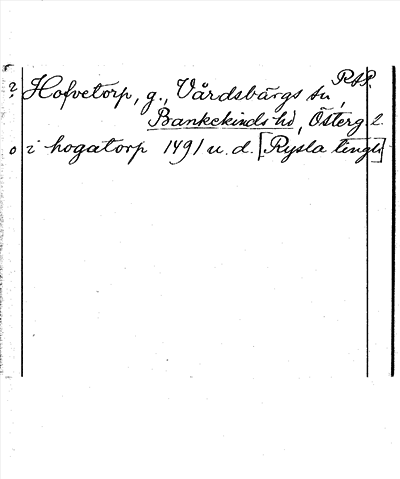 RAP.
? Hofvetorp, g., Vårdsbärgs sn,
Bankekinds hd, Österg. l.
o i hogatorp 1491 u. d. [Rysla tingb]